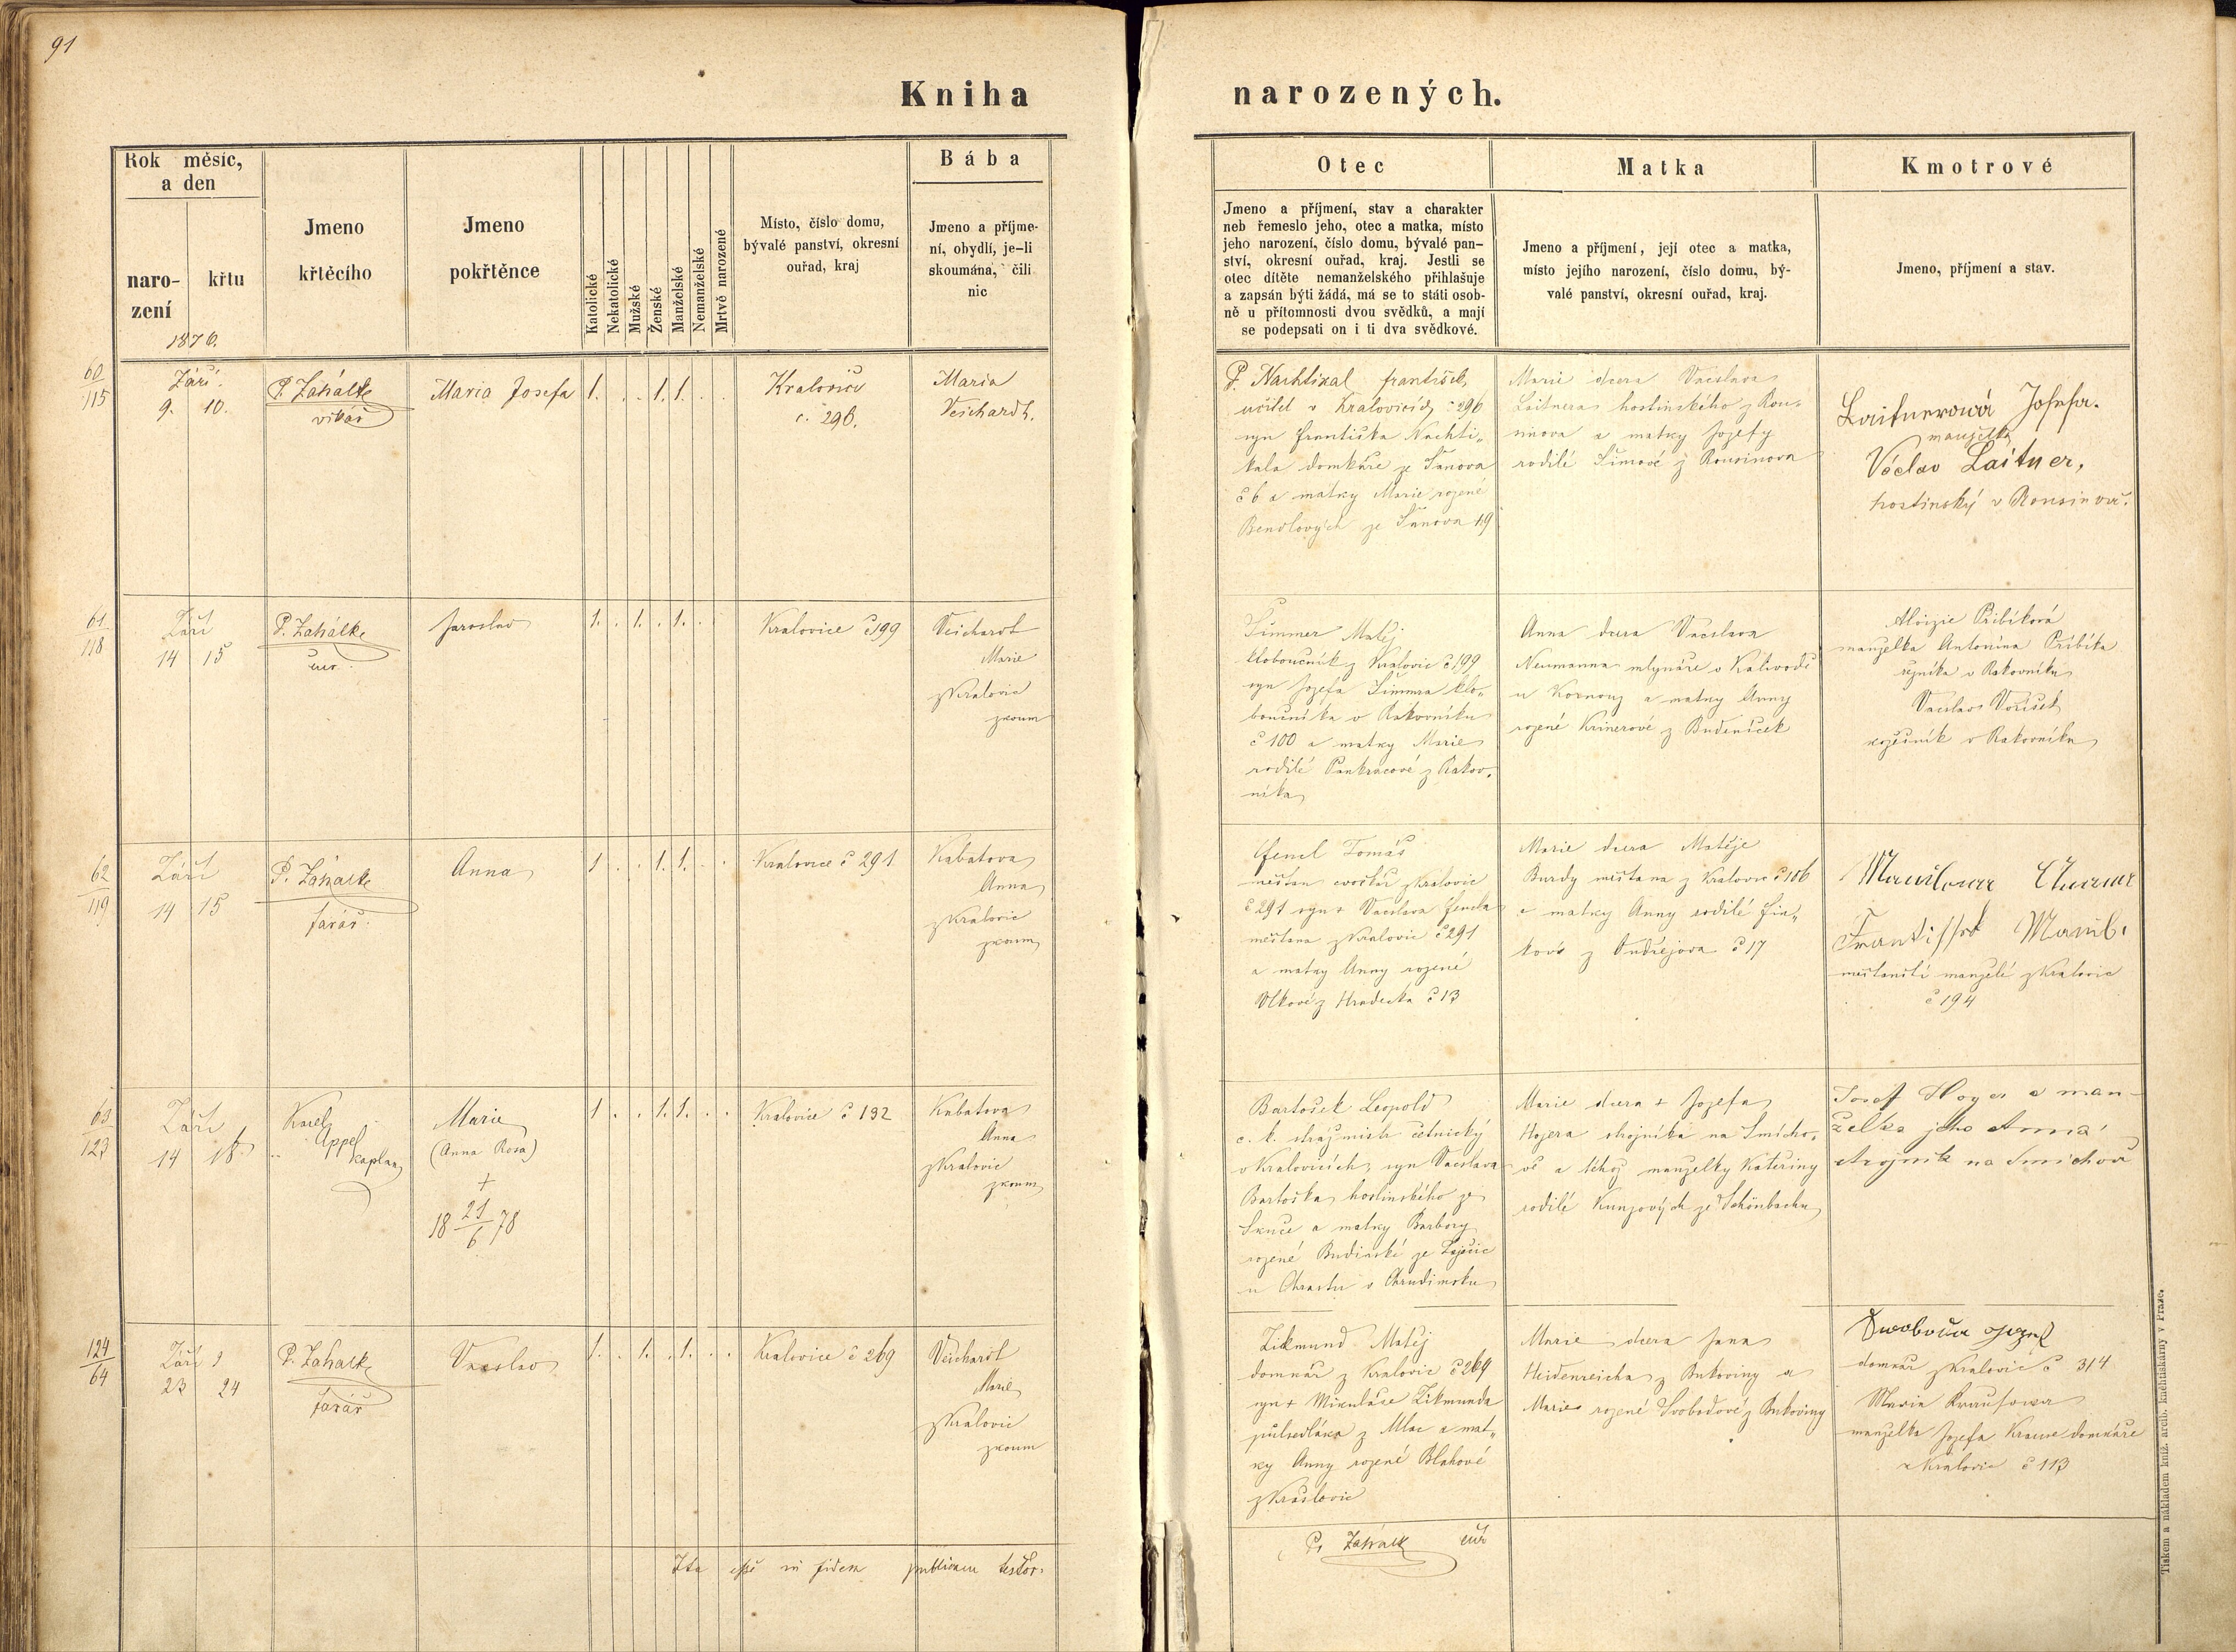 91
Kniha narozených.
Rok měsíc,
a den
naro-
zení
křtu
1876.
Jmeno
křtěcího
Jmeno
pokřtěnce
Katolické
Nekatolické
Mužské
Ženské
Manželské
Nemanželské
Mrtvě narozené
Místo, číslo domu,
bývalé panství, okresní
ouřad, kraj
Bába
Jmeno a příjme-
ní, obydlí, je-li
skoumána, čili
nic
Otec
Jmeno a příjmení, stav a charakter
neb řemeslo jeho, otec a matka, místo
jeho narození, číslo domu, bývalé pan-
ství, okresní ouřad, kraj. Jestli se
otec dítěte nemanželského přihlašuje
a zapsán býti žádá, má se to státi osob-
ně u přítomnosti dvou svědků, a mají
se podepsati on i ti dva svědkové.
Matka
Jmeno a příjmení, její otec a matka,
místo jejího narození, číslo domu, bý-
valé panství, okresní ouřad, kraj.
Kmotrové
Jmeno, příjmení a stav.
60
115
Září
9. 10.
P. Zahálka
vikář
Maria Josefa
1. . . 1. 1. . .
Kralovice
č. 296.
Maria
Veichardt.
P. Nachtikal František
učitel v Kralovicích č 296
syn Františka Nachti-
kala domkáře ze Šanova
č 6 a matky Marie rozené
Bendlových ze Šanova 19
Marie dcera Václava
Laitnera hostinského z Rou-
sinova a matky Jozefy
rodilé Šímové z Rousinova
Laitnerová Josefa.
manželka
Václav Laitner,
hostinský v Rousinově.
61
118
Září
14 15
P. Zahálka
Jaroslav
1. . 1. . 1. . .
Kralovice č 199
Veichardt
Marie
z Kralovic
zkoum
Šimmer Matěj
kloboučník z Kralovic č 199
syn Jozefa Šimmra klo-
boučníka v Rakovníku
č 100 a matky Marie
rodilé Pankracové z Rakov-
níka
Anna dcera Václava
Neumanna mlynáře v Kalivodě
u Kornouz a matky Anny
rozené Krinerové z Budeniček
Aloizie Přibíková
manželka Antonína Přibíka
řezníka v Rakovníku
Václav Voříšek
kožešník v Rakovníku
62
119
Září
14 15
P. Zahálka
farář.
Anna
1 . . 1. 1. . .
Kralovice č 291
Kabatova
Anna
z Kralovic
zkoum
Fencl Tomáš
měšťan z Kralovic
č 291 syn + Václava Fencla
měšťana z Kralovic č 291
a matky Anny rozené
Vlkové z Hradecka č 13
Marie dcera Matěje
Burdy měšťana z Kralovic č 106
a matky Anny rodilé Fin-
kové z Ondřejova č 17
měšťanští manželé z Kralovic
č 194
63
123
Září
14 18
Karel
Appel
kaplan
Marie
(Anna Rosa)
+
18 21/6 78
1 . . 1. 1. . .
Kralovice č 132
Kabatova
Anna
z Kralovic
zkoum
Bartošek Leopold
c. k. strážmistr četnický
v Kralovicích, syn Václava
Bartoška hostinského ze
Skuče a matky Barbory
rozené Budinské ze Zaječic
u Chrastu v Chrudimsku
Marie dcera + Jozefa
Hojera strojníka na Smícho-
vě a též manželky Kateřiny
rodilé Kunzových ze Schönbachu
Josef Hoyer a man-
želka jeho Anna
strojník na Smíchově
124
64
Září
23 24
P. Zahálka
farář
Vácslav
1. . 1. . 1. . .
Kralovice č 269
Veichardt
Marie
z Kralovic
zkoum
Zikmund Matěj
domkář z Kralovic č 269
syn + Mikuláše Zikmunda
půlsedláka z Mlac a mat-
ky Anny rozené Blahové
z Krašlovic
Marie dcera Jana
Heidenreicha z Bukoviny a
Marie rozené Svobodové z Bukoviny
Swoboda Jozef
domkář z Kralovic č 314
Maria Krausowa
manželka Jozefa Krause domkáře
z Kralovic č 113
Ita esse in fidem publicam testor.
P. Zahálka
Tiskem a nákladem kníž. arcib. knihtiskárny v Praze.